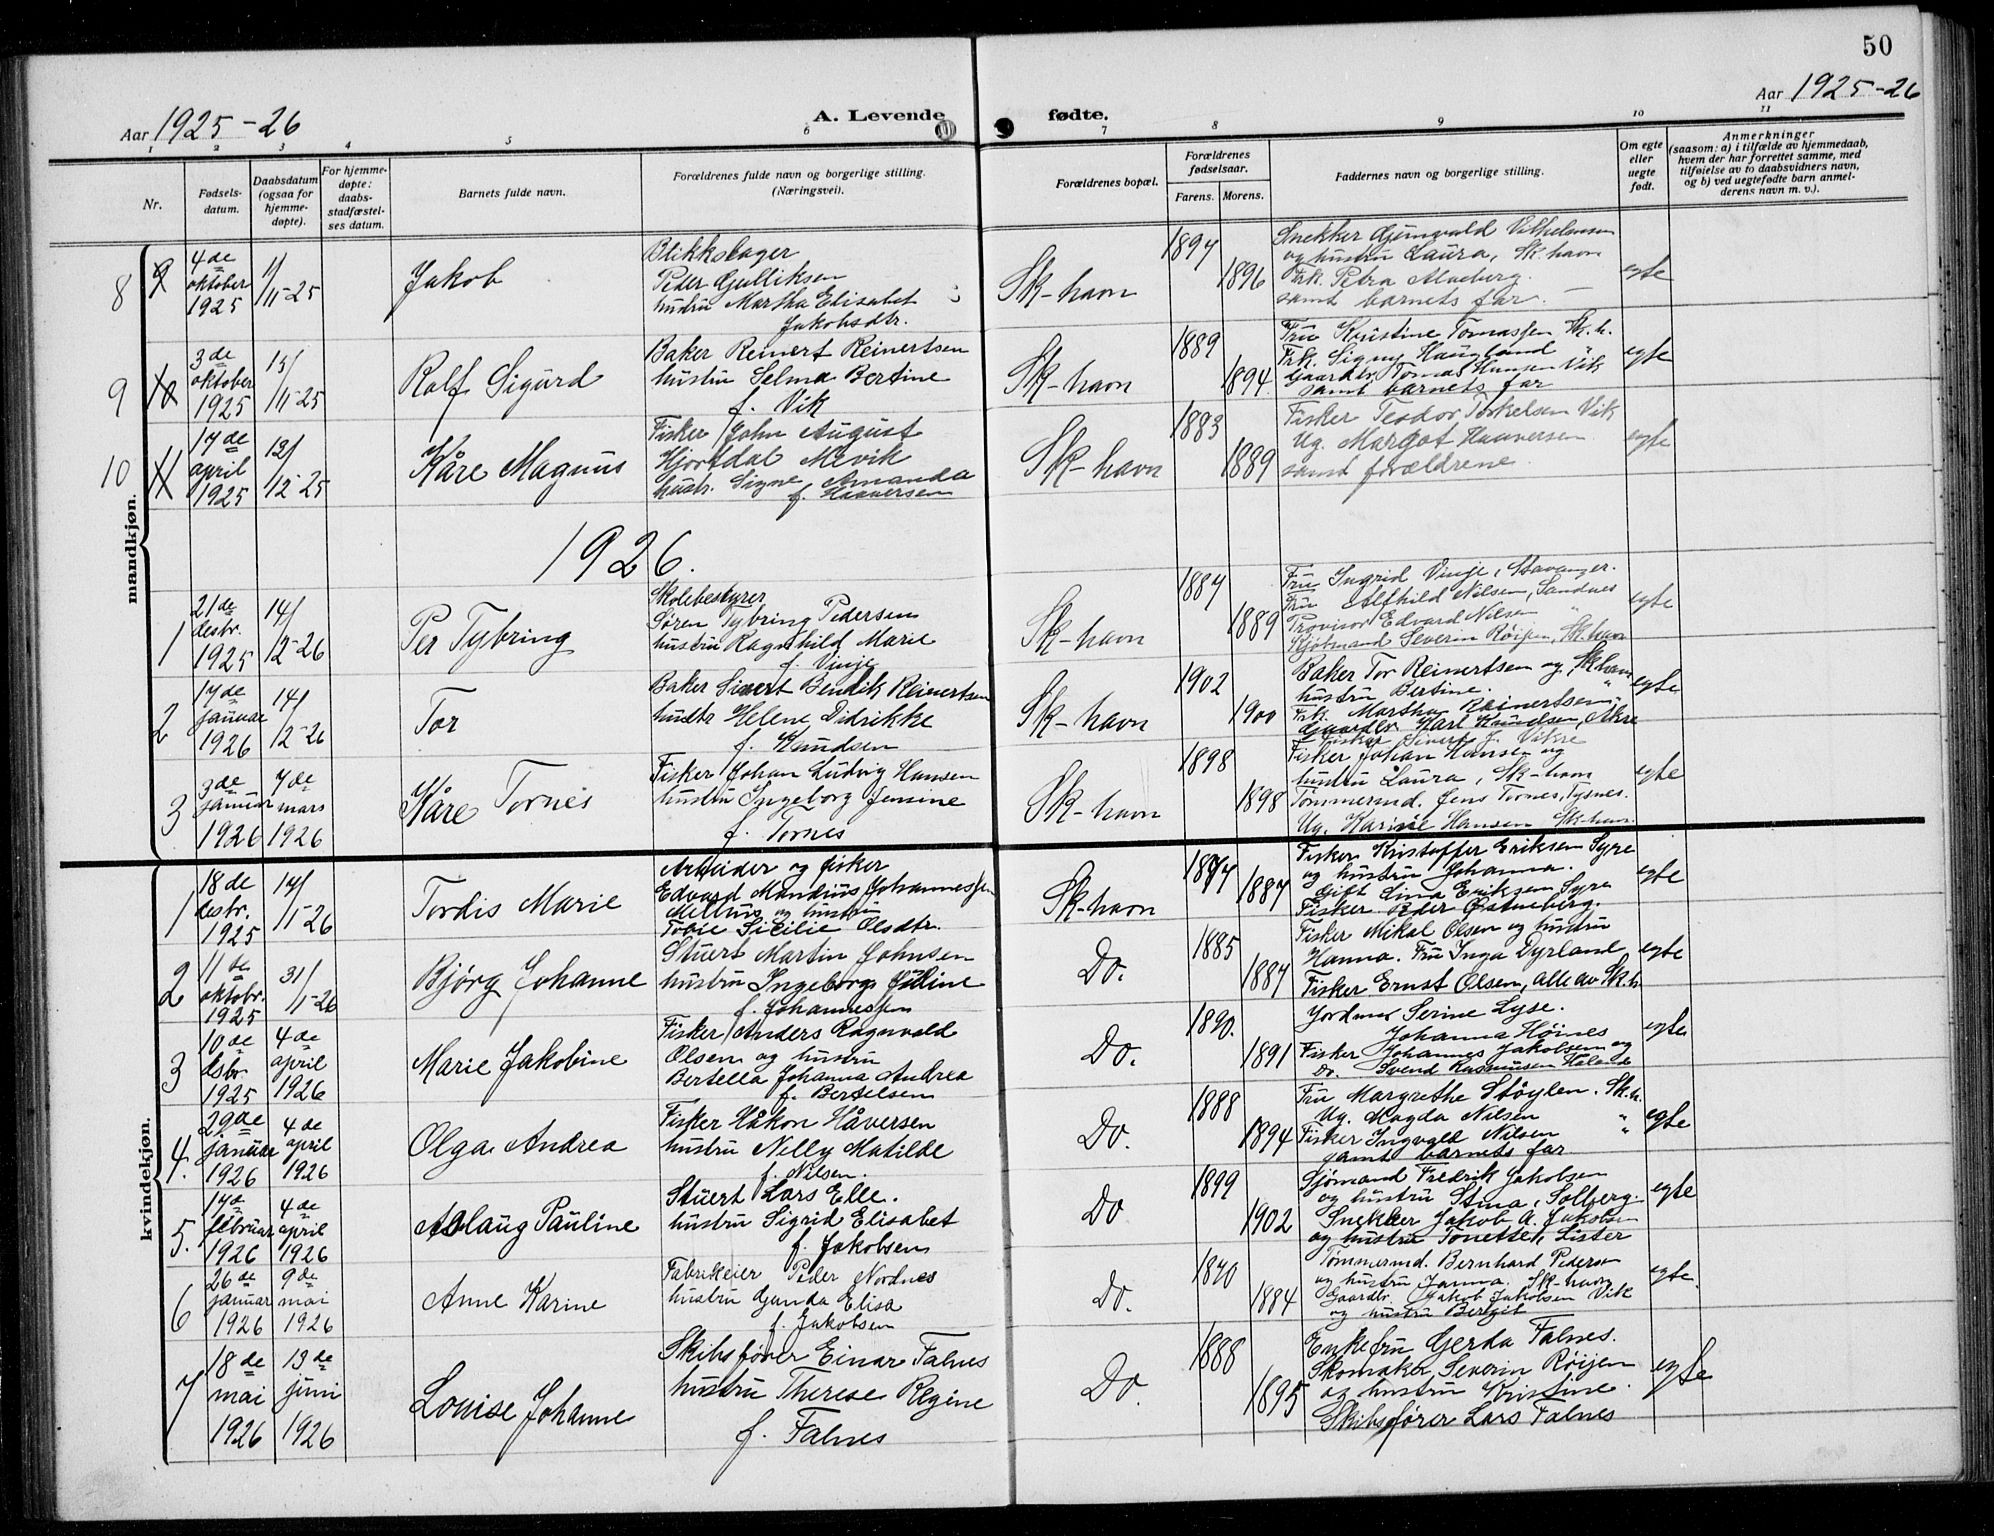 50
Aar 1925-26
A. Levende fødte.
Aar 1925-26
1 2 3 4 5 6 7 8 9 10 11
Nr.
Fødsels-
datum.
Daabsdatum
(ogsaa for
hjemme-
døpte).
For hjemme-
døpte:
daabs-
stadfæstel-
ses datum.
Barnets fulde navn.
Forældrenes fulde navn og borgerlige stilling.
(Næringsvei).
Forældrenes bopæl.
Forældrenes
fødselsaar.
Farens. Morens.
Faddernes navn og borgerlige stilling.
Om egte
eller
uegte
født.
Anmerkninger
(saasom: a) i tilfælde av hjemmedaab,
hvem der har forrettet samme, med
tilføielse av to daabsvidners navn,
og b) ved uegtefødte barn anmel-
derens navn m. v.).
mandkjøn.
8 9
4de
oktober
1925
1/
11-25
Jakob
Blikkslager
Peder Gulliksen
hustru Martha Elisabet
Jakobsdtr.
Sk-havn
1897
1896
Snekker Gunvald Vilhelmsen
og hustru Laura, Sk.havn
Frk. Petra Alveberg.
samt barnets far.
egte
9 10
3de
oktober
1925
15/
11-25
Ralf Sigurd
Baker Reinert Reinertsen
hustru Selma Bertine
f. Vik
Sk-havn
1889
1894
Fru Kristine Tomassen Sk.h.
Frk. Signy Haugland "
Gaardbr. Tomas Hansen Vik
samt barnets far
egte
10 11
17de
april
1925
13/
12-25
Kåre Magnus
Fisker John August
Hjortdal Mevik
hustr. Signe Amanda
f. Haaversen
Sk-havn
1883
1889
Fisker Teodor Torkelsen Vik
Ug. Margot Haaversen
samt forældrene.
egte
1926.
1
21de
desbr.
1925
14/
12-26
Per Tybring
Skolebestyrer
Søren Tybring Pedersen
hustru Ragnhild Marie
f. Vinje
Sk-havn
1884
1889
Fru Ingrid Vinje, Stavanger.
Fru Alfhild Nilsen, Sandnes
Provisor Edvard Nilsen "
Kjøbmand Severin Røijen, Sk.havn
egte
2
17de
januar
1926
14/
12-26
Tor
Baker Sivert Bendik Reinertsen
hustr Helene Didrikke
f. Knudsen
Sk-havn
1902
1900
Baker Tor Reinertsen og Sk.havn
hustru Bertine. "
Frk. Martha Reinertsen "
Gaardbr. Karl Knudsen, Åkre
Fisker Sivert J. Vikre
egte
3
3de
januar
1926
7de
mars
1926
Kåre Tornes
Fisker Johan Ludvig Hansen
hustru Ingeborg Jensine
f. Tornes
Sk-havn
1898
1898
Fisker Johan Hansen og
hustru Laura, Sk-havn
Tømmermd. Jens Tornes, Tysnes.
Ug. Karine Hansen Sk-havn.
egte
kvindekjøn.
1
18de
desbr.
1925
17/
11-26
Tordis Marie
Arbeider og fisker
Edvard Mandrius Johannessen
Mellhus og hustru
Tobie Sicilie Olsdtr.
Sk-havn
1887
Fisker Kristoffer Eriksen Syre
og hustru Johanna.
Gift Lina Eriksen Syre
Fisker Peder Østneberg.
egte
2
11de
oktobr.
1925
31/
1-26
Bjørg Johanne
Stuert Martin Johnsen
hustru Ingeborg Juline
f. Johannessen
Do.
1885
1887
Fisker Mikal Olsen og hustru
Hanna. Fru Inga Dyrland
Fisker Ernst Olsen, alle av Sk.h.
egte
3
10de
dsbr.
1925
4de
april
1926
Marie Jakobine
Fisker Anders Ragnvald
Olsen og hustru
Bertella Johanna Andrea
f. Bertelsen
Do.
1890.
1891
Jordmor Serine Lyse.
Johanna Høines
Fisker Johannes Jakobsen og
Do. Svend Rasmussen Håland
egte
4.
29de
januar
1926
4de
april
1926
Olga Andrea
Fisker Håkon Håversen
hustru Nelly Matilde
f. Nilsen.
Do.
1888
1894
Fru Margrethe Støylen. Sk.h.
Ug. Magda Nilsen "
Fisker Ingvald Nilsen "
samt barnets far
egte
5.
17d
februar
1926
4de
april
1926
Aslaug Pauline
Stuert Lars Elle.
hustru Sigrid Elisabet
f. Jakobsen
Do
1899
1902
Sjømand Fredrik Jakobsen
og hustru Stina, Solberg.
Snekker Jakob A. Jakobsen
og hustru Tonette, Lister
egte
6
26de
januar
1926
9de
mai
1926
Anne Karine
Fabrikeier Peder Nordnes
hustru Gunda Elisa
f. Jakobsen
Do.
1870
1884
Tømmermd. Bernhard Pedersen
og hustru Janna. Sk-havn
Gaardbr. Jakob Jakobsen Vik
og hustru Bergit
egte.
7
18de
mai
1926
13de
juni
1926
Louise Johanne
Skibsfører Einar Falnes
hustru Therese Regine
f. Falnes
Do.
1888
1895
Enkefru Gerda Falnes.
Skomaker Severin Røijen
og hustru Kristine.
Skibsfører Lars Falnes
egte